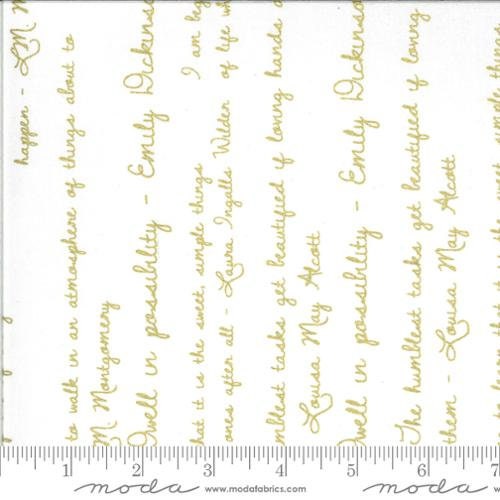 happen - L.M. M
to walk in an atmosphere of things about to
M. Montgomery
Dwell in possibility - Emily Dickinso
I am beg
hat it is the sweet, simple things
of life wh
ones after all - Laura Ingalls Wilder
mblest tasks get beautified if loving hands
Louisa May Alcott
Dwell in possibility - Emily Dickinso
The humblest tasks get beautified if loving
them - Louisa May Alcott
1 2 3 4 5 6 7
moda www.modafabrics.com moda